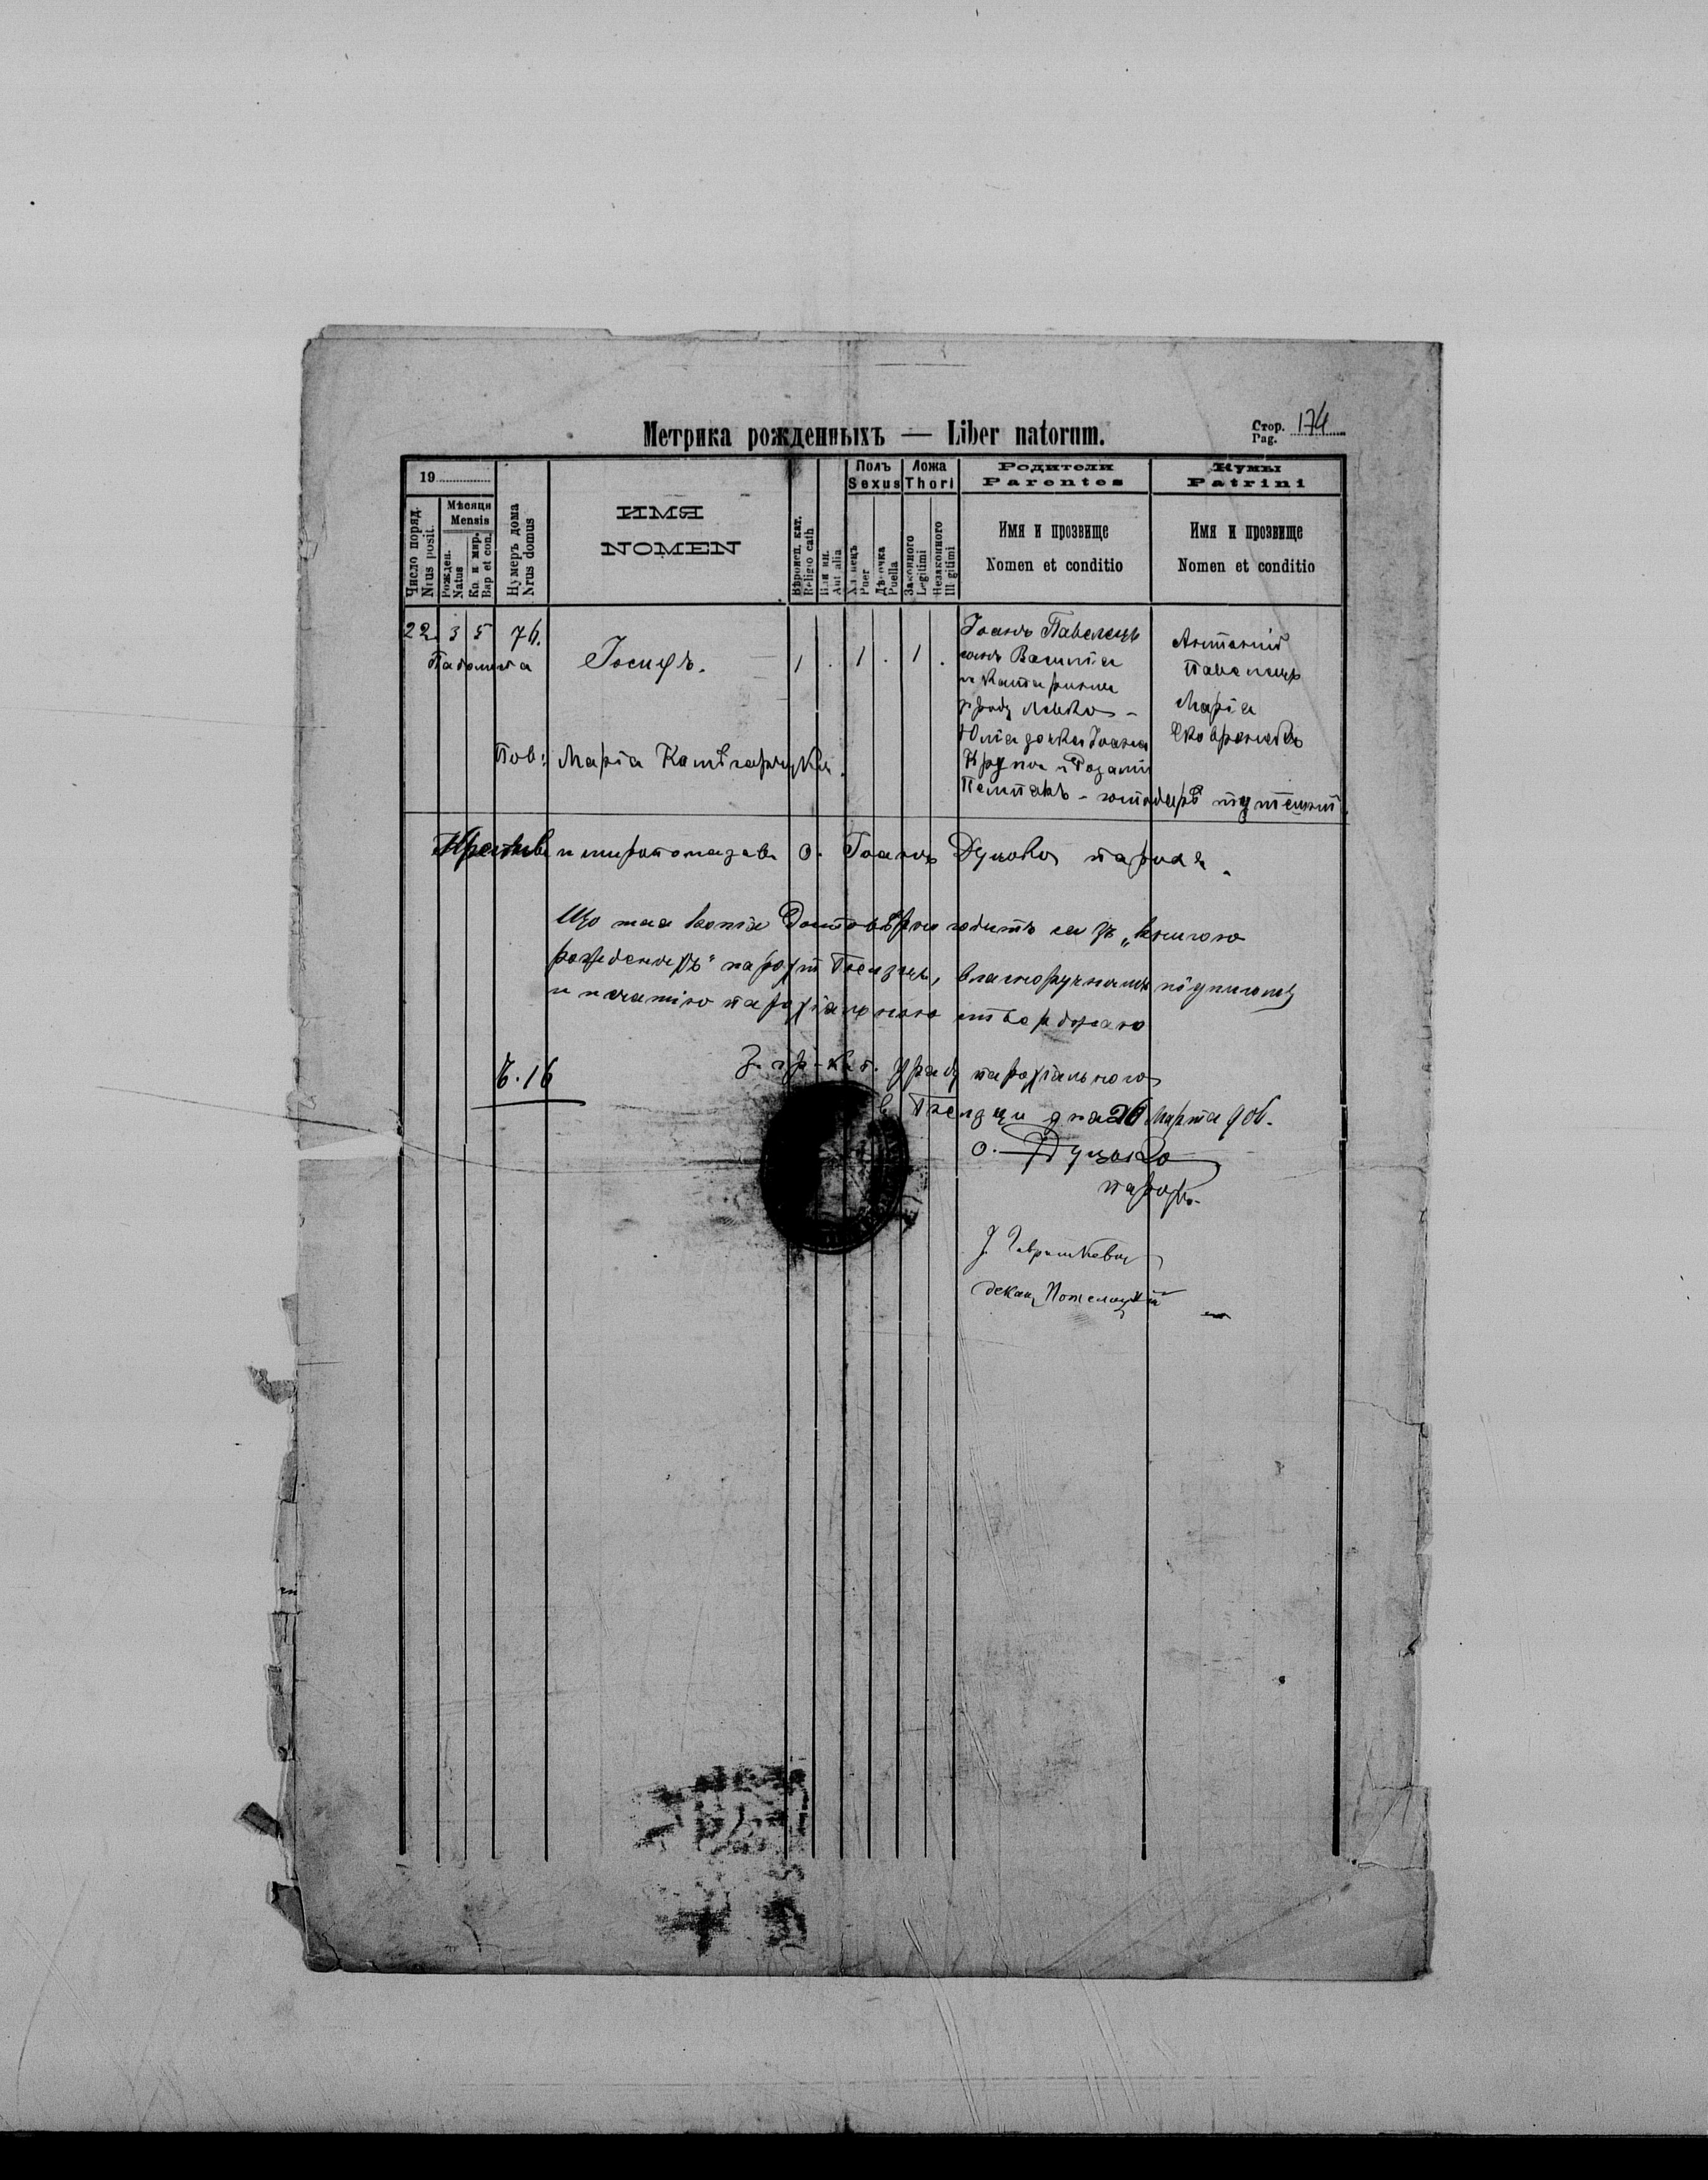 Метрика рожденныхъ — Liber natorum.
Стор. 174
Pag.
19
Число поряд.
Nrus posit.
Мѣсяця
Mensis
Рожден.
Natus
Кр. и мир.
Bap et con.
Нумеръ дома
Nrus domus
ИМЯ
NOMEN
Вѣроисп. кат.
Religio cath
Или ин.
Aut alia
Полъ
Sexus
Хлопецъ
Puer
Дѣвочка
Puella
Ложа
Thori
Законного
Legitimi
Незаконного
Illegitimi
Родители
Parentes
Имя и прозвище
Nomen et conditio
Кумы
Patrini
Имя и прозвище
Nomen et conditio
22 3 5 76.
Падолиста
Іосифъ.
1 . 1 . 1 .
Іоанъ Павелець
сынъ Василія
и Катарины
зъ роду
Юлія дочка Іоана
Крупы и Розаліи
Антоній
Павелець
Марія
Пов: Марія
Крестивъ и миропомазавъ о. Іоаннъ Дуцько парохъ.
Що тая копія достовѣрно годитъ ся зъ „книгою
рожденныхъ" парохіи, власноручнымъ подписомъ
и печатію парохіальною ствержаю
Ч. 16
З гр-кат. уряду парохіального
дня 26 Марта 906.
о. Дуцько
парохъ.
декан